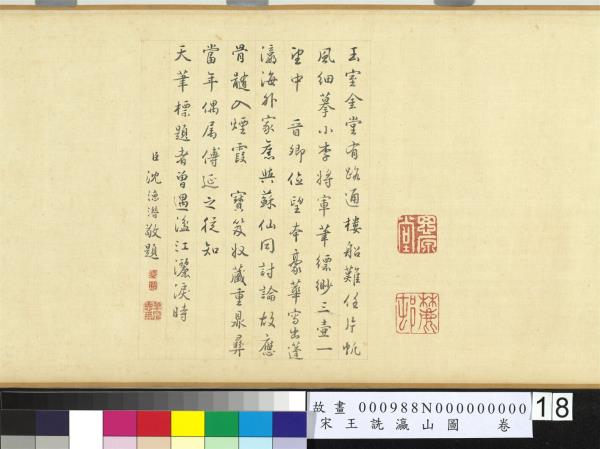 玉室金堂有路通樓船難任片帆
風細摹小李將軍筆縹緲三壺一
望中 晉卿位望本豪華寫出蓬
瀛海外家舊與蘇仙同討論故應
骨髓入煙霞 寶笈收藏重鼎彝
當年偶屬傅延之從知
天筆標題者曾遇澄江灑淚時
臣沈德潛敬題
故畫 000988N000000000
宋王詵瀛山圖 卷
18